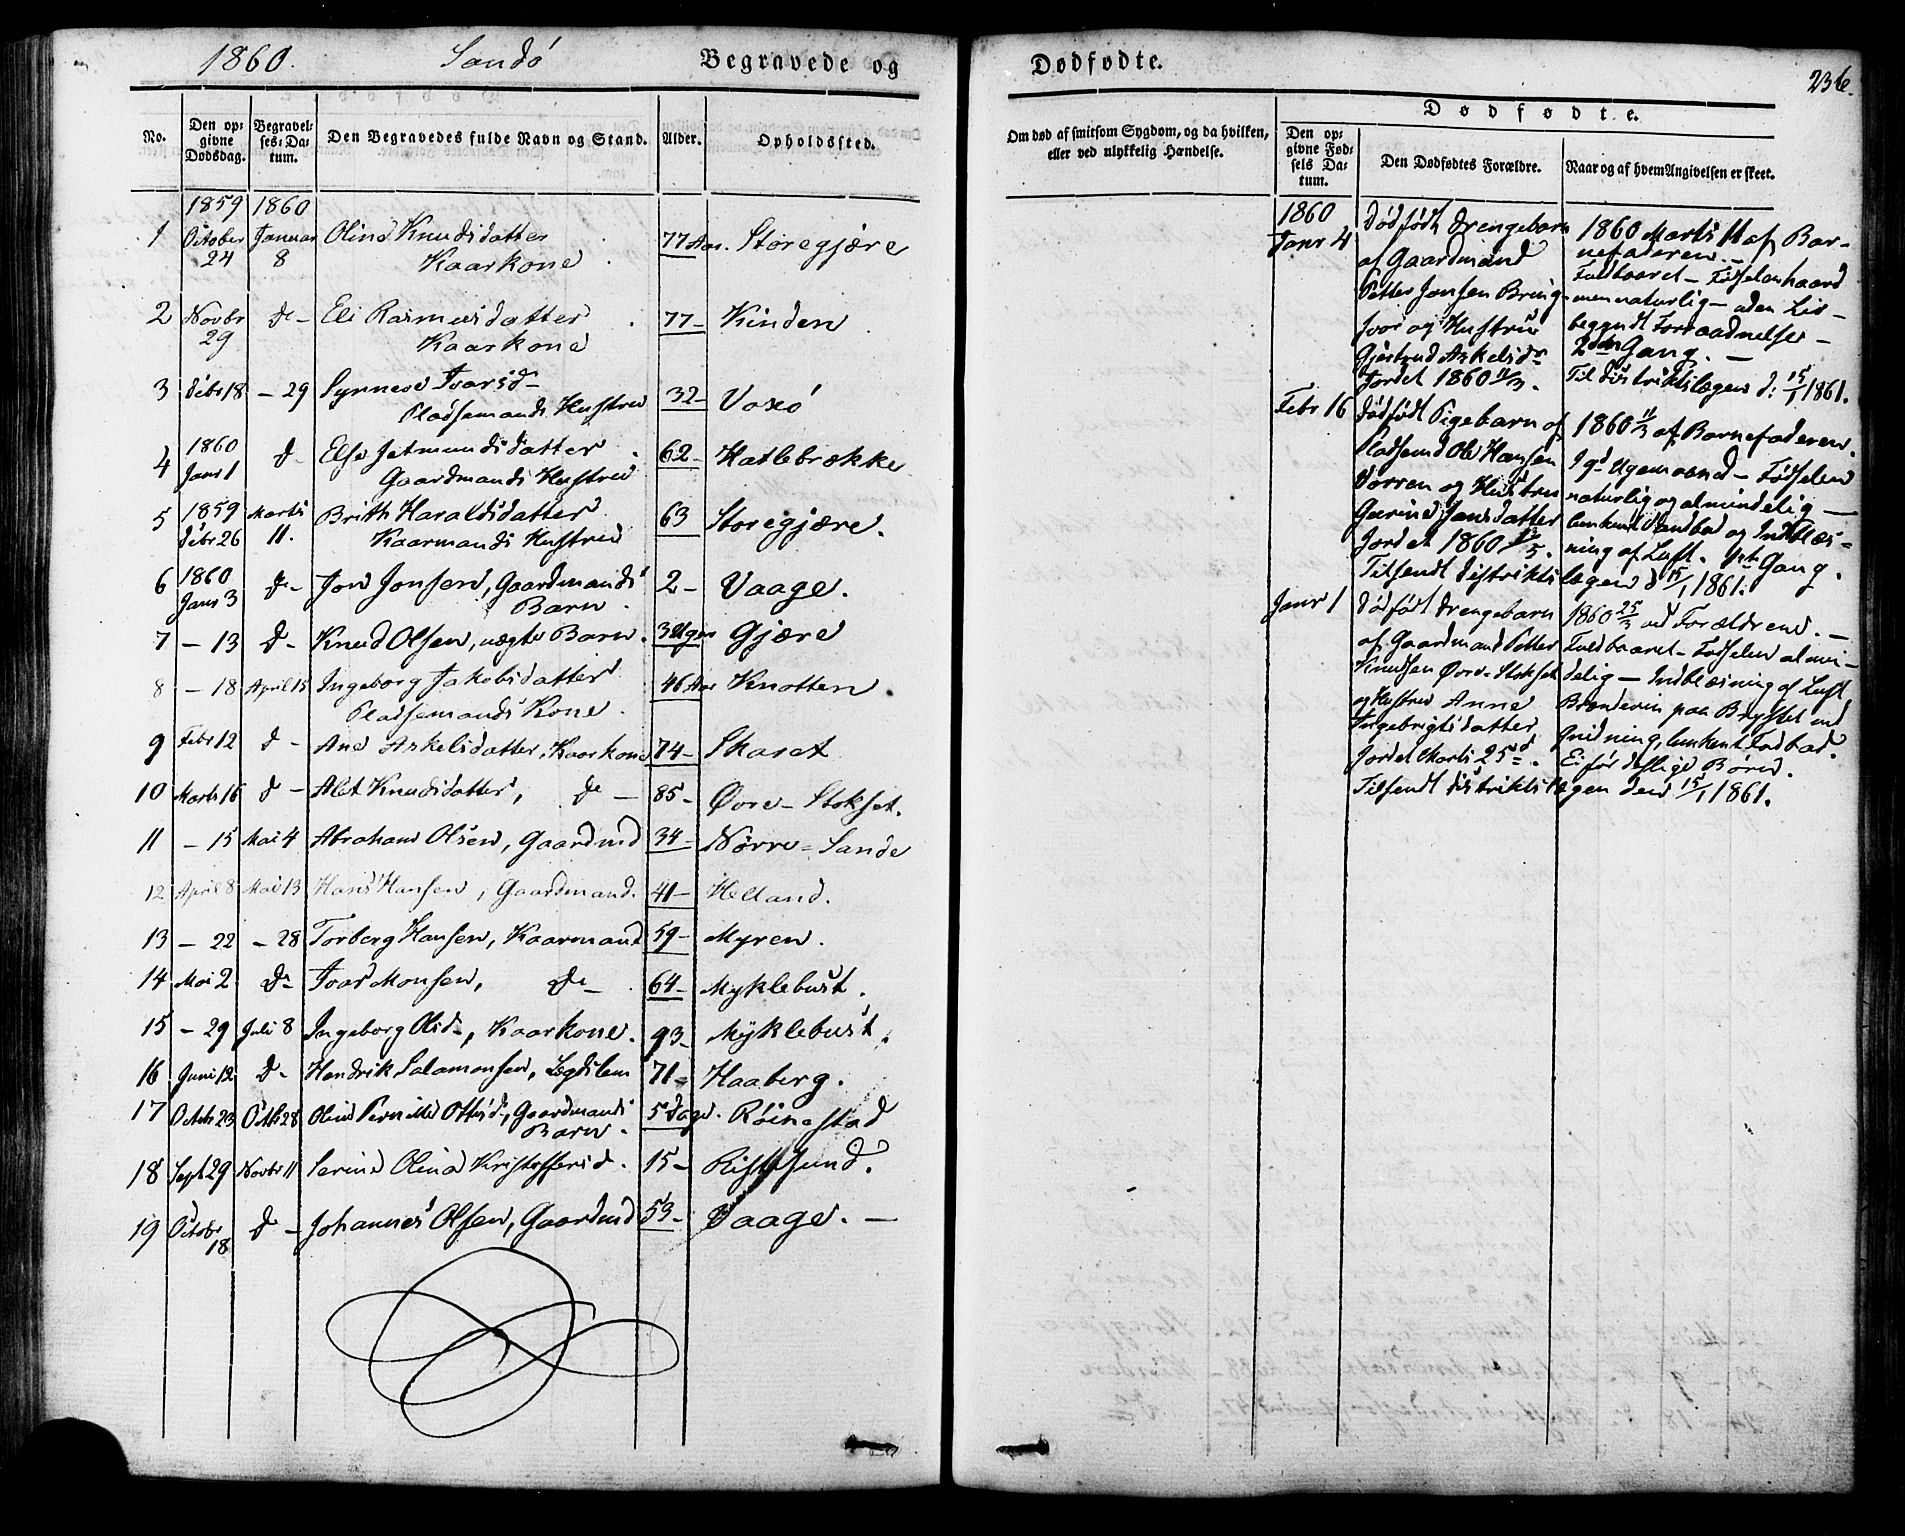 1860. Sandø Begravede og
No. Den opgivne Dødsdag. Begravelses-Datum. Den Begravedes fulde Navn og Stand. Alder. Opholdssted.
1859 1860
1 October 24 Januar 8 Olina Knudsdatter 77 Aar. Storegjære
Kaarkone
2 Novbr 29 Do Eli Rasmusdatter 77 Kinden
Kaarkone
3 Debr 18 29 Synneve Ivarsd 32 Voxø
Pladsemands Hustru
1860
4 Janr 1 Do Else Jetmundsdatter 62 Hatlebrække
Gaardmands Hustru
1859
5 Debr 26 Marts 11. Brith Haraldsdatter 63 Storegjære.
Kaarmands Hustru
1860
6 Janr 3 Do Jon Jonsen, Gaardmands 2 Vaage.
Barn.
7 13 Do Knud Olsen, uægte Barn. 3 Uger Gjære
8 18 April 15 Ingeborg Jakobsdatter 46 Aar Knotten.
Pladsemands Kone.
9 Febr 12 Do Ane Askelsdatter, Kaarkone 74 Skaret
10 Marts 16 Do Alet Knudsdatter, Do 85 Øvre-Stokset.
11 15 Mai 4 Abraham Olsen, Gaardmd 34 Nørre-Sande
12 April 8 Mai 13 Hans Hansen, Gaardmand. 41 Helland.
13 22 28 Torberg Hansen, Kaarmand 59 Myren.
14 Mai 2 Do Ivar Monsen, Do 64 Myklebust.
15 29 Juli 8 Ingeborg Olsd, Kaarkone. 93 Myklebust.
16 Juni 12 Do Hendrik Salamonsen, Legdslem 71 Haaberg.
17 Octobr 23 Octbr 28 Olina Pernille Ottesd, Gaardmands 5 Dage. Røinestad
Barn.
18 Sept 29 Novbr 11 Serine Olina Kristoffersd. 15 Ristesund.
19 Octobr 18 Do Johannes Olsen, Gaardmd 53 Vaage.
Dødfødte.
236.
Om død af smitsom Sygdom, og da hvilken, eller ved ulykkelig Hændelse.
Dødfødte.
Den opgivne Fødsels Datum. Den Dødfødtes Forældre. Naar og af hvem Angivelsen er skeet.
1860
Janr 4
Dødfødt Drengebarn
af Gaardmand
Petter Jonsen Bring-
svor og Hustru
Gjertrud Askelsdr
Jordet 1860 11/3.
1860 Marts 11 af Bar-
nefaderen.
Fuldbaaret - Fødselen haard
men naturlig - uden Liv -
begyndt Forraadnelse -
2den Gang.
Til Distriktslægen d: 15/1 1861.
Febr 16
Dødfødt Pigebarn af
Pladsemd Ole Hansen
Dørren og Hustru
Gurine Jansdatter
Jordet 1860
Tilsendt Distrikts
1860 11/3 af Barnefaderen.
Ugemaaned - Fødselen
naturlig og almindelig -
lunkent Vandbad og Indblæs-
ning af Luft. Gang.
lægen d 15/1 1861.
Janr 1
Dødfødt Drengebarn
af Gaardmand Petter
Knudsen Øvre-Stokset
og Hustru Anne
Ingebrigtsdatter,
Jordet Marts 25de.
Tilsendt Distriktslægen den 15/1 1861.
1860 25/3 ved Forældrene.
Fuldbaaret - Fødselen almin-
delig - Indblæsning af Luft
Brændeviin paa Brystet ved
Gnidning, lunkent Fodbad.
Ei før deslige Børn.